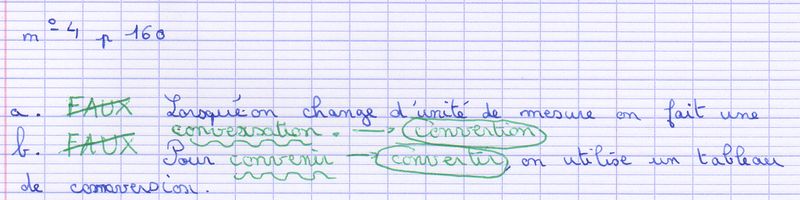 n° 4 p 160
a. EAUX Lorsqu'on change d'unité de mesure on fait une
conversation. → convertion
b. EAUX Pour convenir → convertir, on utilise un tableau
de comversion.